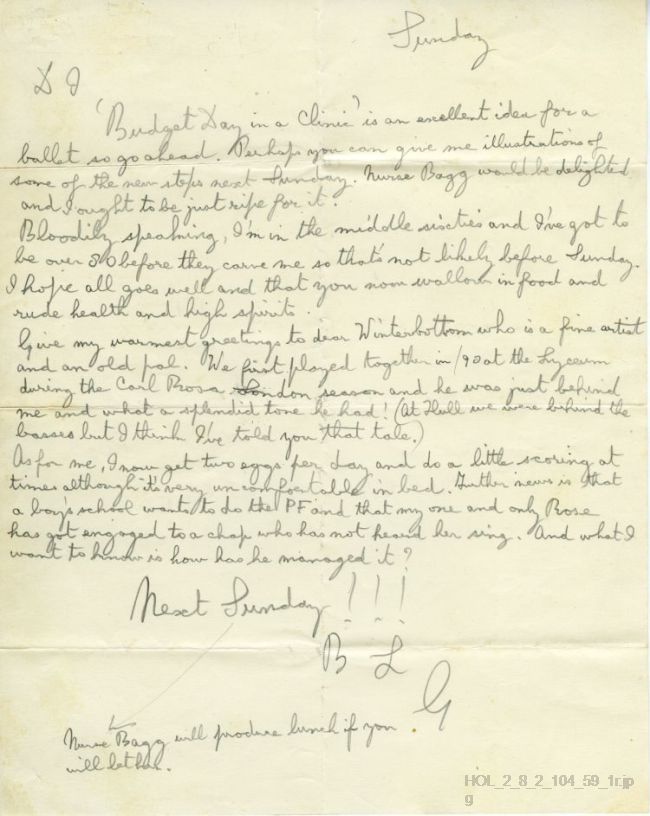 Sunday
D I
'Budget Day in a Clinic' is an excellent idea for a
ballet so go ahead. Perhaps you can give me illustrations of
some of the new steps next Sunday. Nurse Bagg would be delighted
and I ought to be just ripe for it.
Bloodily speaking, I'm in the middle sixties and I've got to
be over 80 before they carve me so that's not likely before Sunday.
I hope all goes well and that you now wallow in food and
rude health and high spirits.
Give my warmest greetings to dear Winterbottom who is a fine artist
and an old pal. We first played together in /90 at the Lyceum
during the Carl Rosa London season and he was just behind
me and what a splendid tone he had! (At Hull we were behind the
basses but I think I've told you that tale.)
As for me, I now get two eggs per day and do a little scoring at
times although it's very uncomfortable in bed. Further news is that
a boy's school wants to do the PF and that my one and only Rose
has got engaged to a chap who has not heard her sing. And what I
want to know is how has he managed it?
Next Sunday !!!
B L
G
Nurse Bagg will produce lunch if you
will let her.
HOL_2_8_2_104_59_1r.jp
g